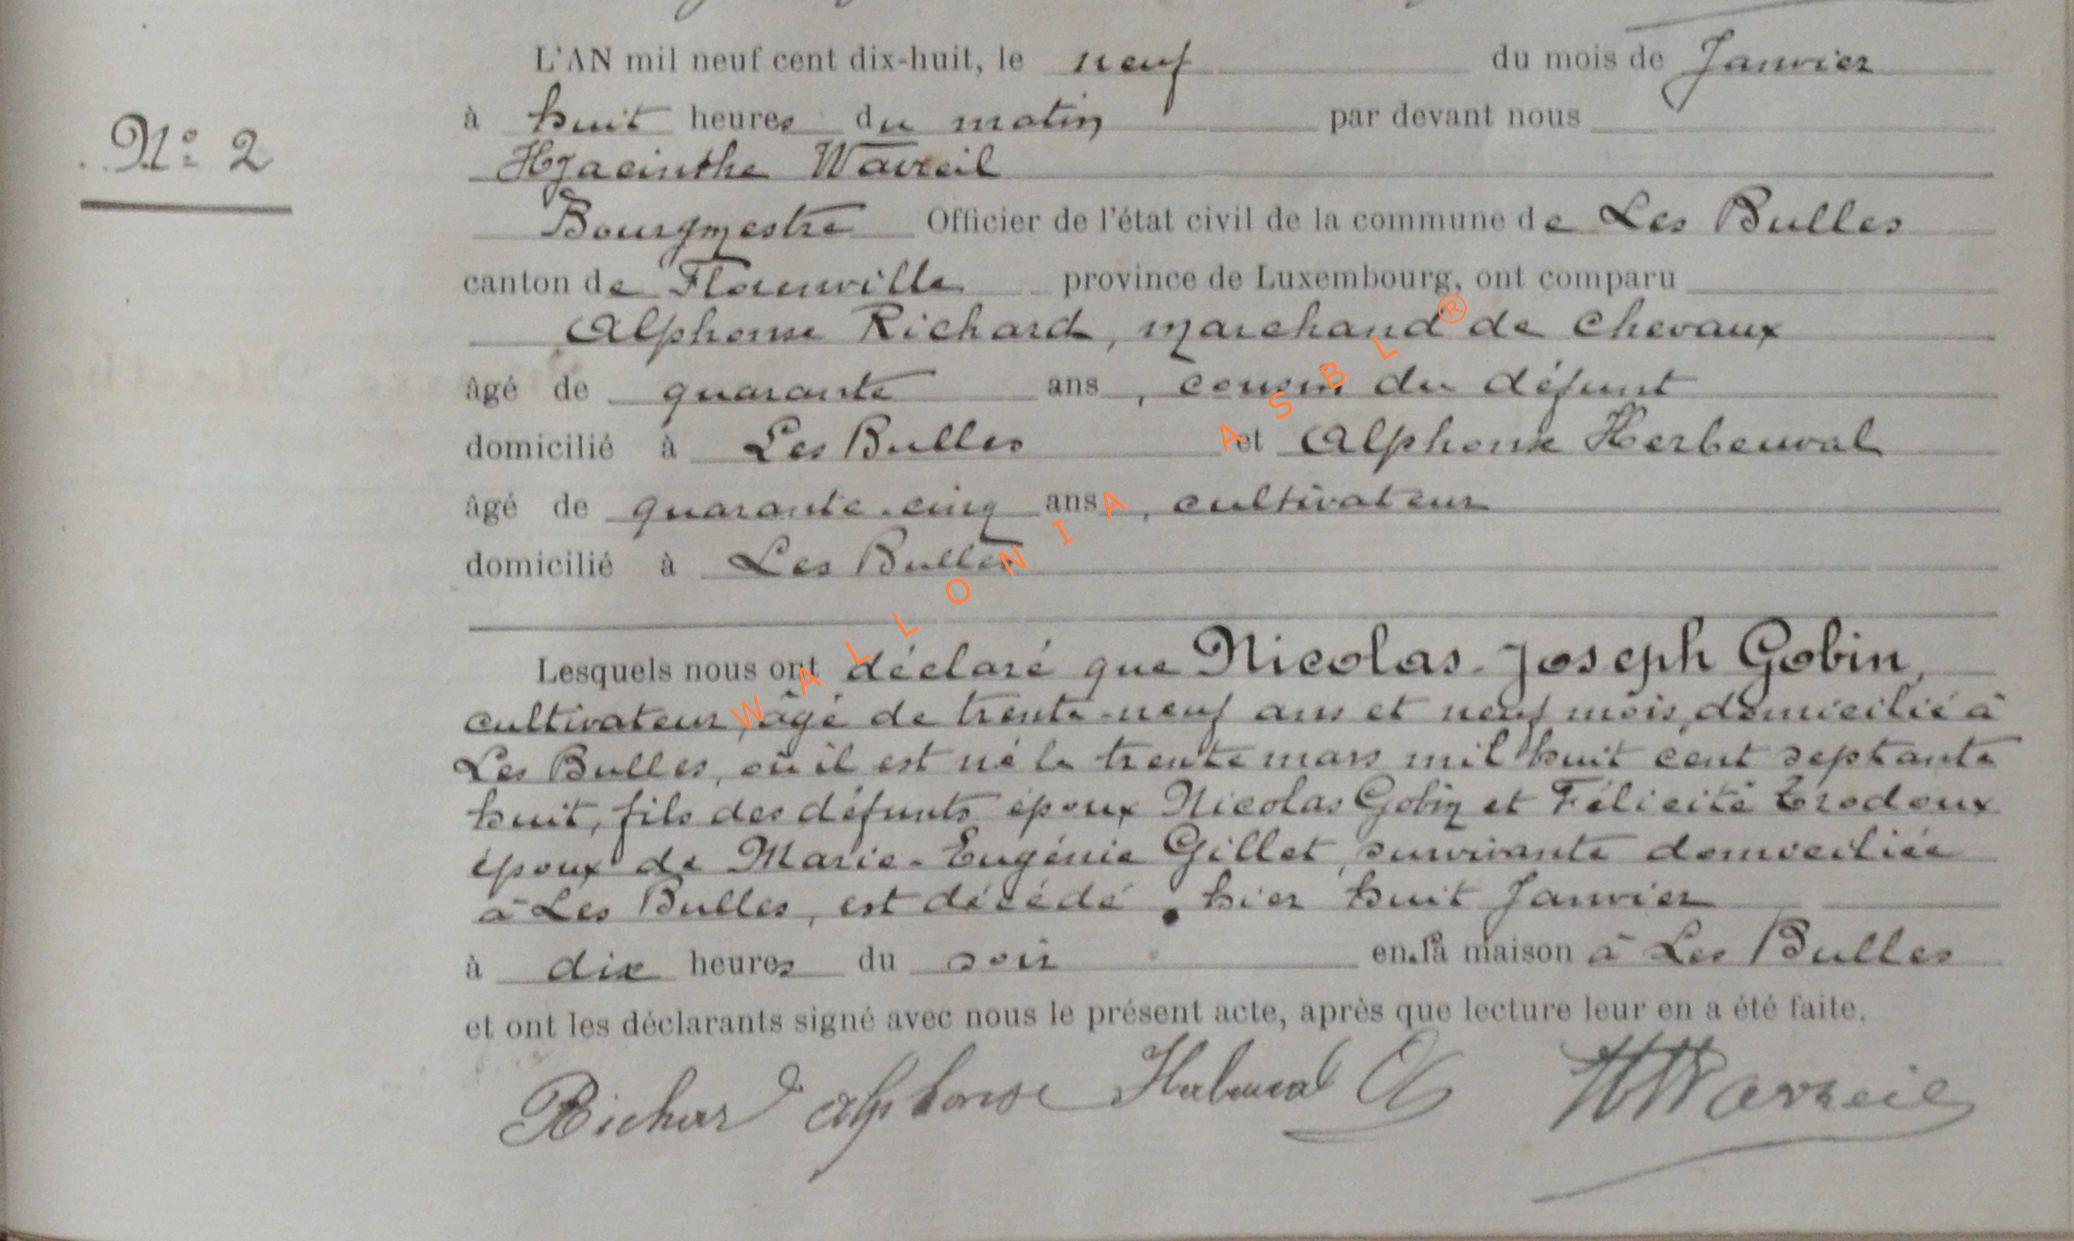 L'AN mil neuf cent dix-huit, le neuf du mois de Janvier
N° 2
à huit heures du matin par devant nous
Hyacinthe Wavreil
Bourgmestre Officier de l'état civil de la commune de Les Bulles
canton de Florenville province de Luxembourg, ont comparu
Alphonse Richard, marchand de chevaux
âgé de quarante ans, cousin du défunt
domicilié à Les Bulles et Alphonse Herbeuval
âgé de quarante-cinq ans, cultivateur
domicilié à Les Bulles
Lesquels nous ont déclaré que Nicolas-Joseph Gobin,
cultivateur, âgé de trente-neuf ans et neuf mois, domicilié à
Les Bulles, où il est né le trente mars mil huit cent septante
huit, fils des défunts époux Nicolas Gobin et Félicité Trodoux
époux de Marie-Eugénie Gillet, survivante domiciliée
à Les Bulles, est décédé hier huit Janvier
à dix heures du soir en la maison à Les Bulles
et ont les déclarants signé avec nous le présent acte, après que lecture leur en a été faite.
Richard Alphonse Herbeuval HWavreil
WALLONIA ASBL ®